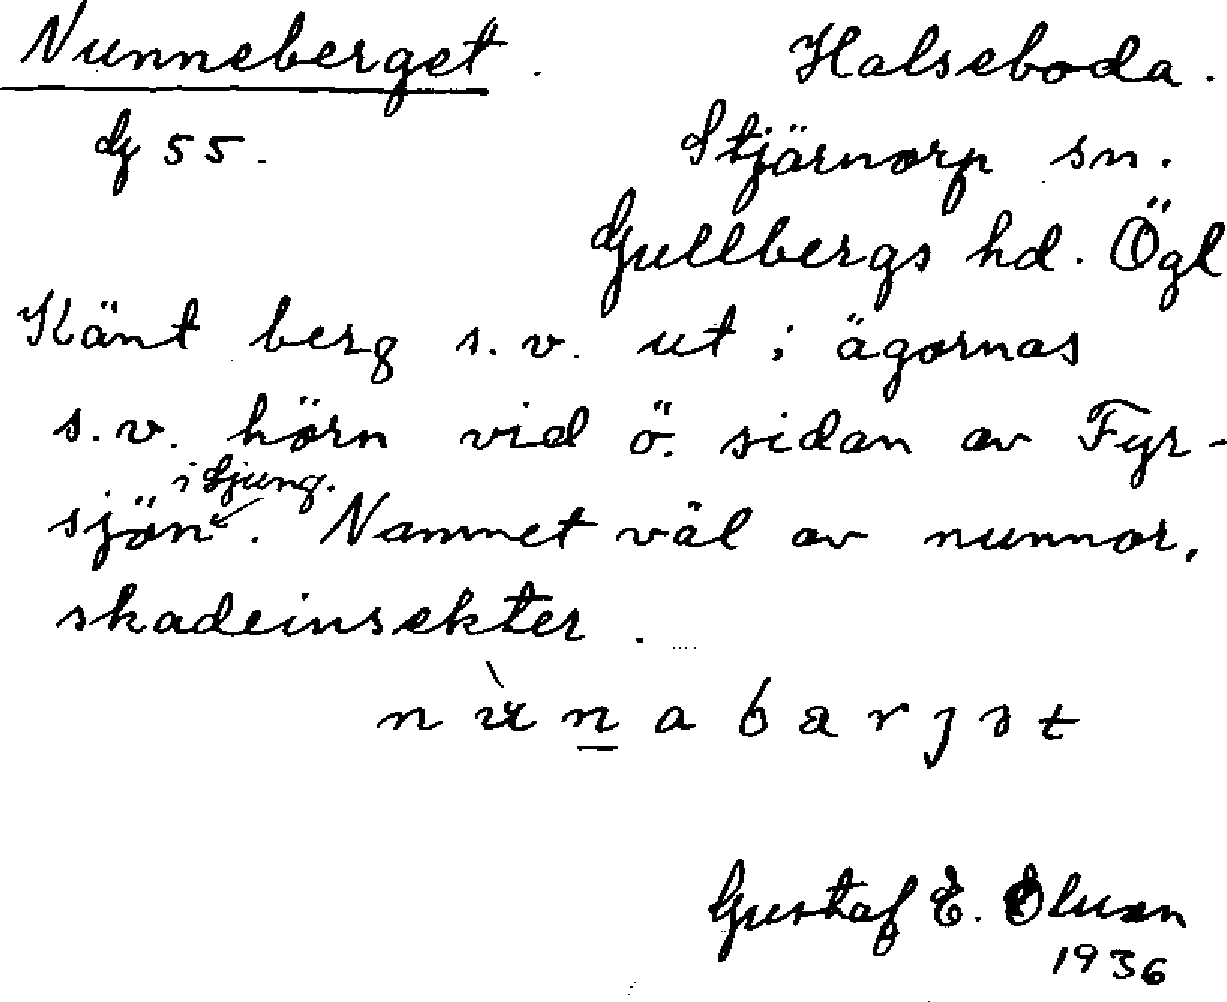 Nunneberget. Halseboda.
dg 55. Stjärnorp sn.
Gullbergs hd. Ögl
Känt berg s.v. ut i ägornas
s.v. hörn vid ö. sidan av Fyr-
i Ljung.
sjön. Namnet väl av nunnor,
skadeinsekter.
Gustaf E. Olson
1936